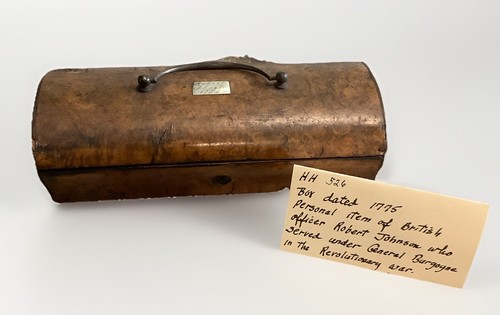 HH 526
Box dated 1775
Personal item of British
officer Robert Johnson who
served under General Burgoyne
in the Revolutionary war.